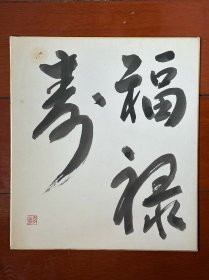 福禄
寿